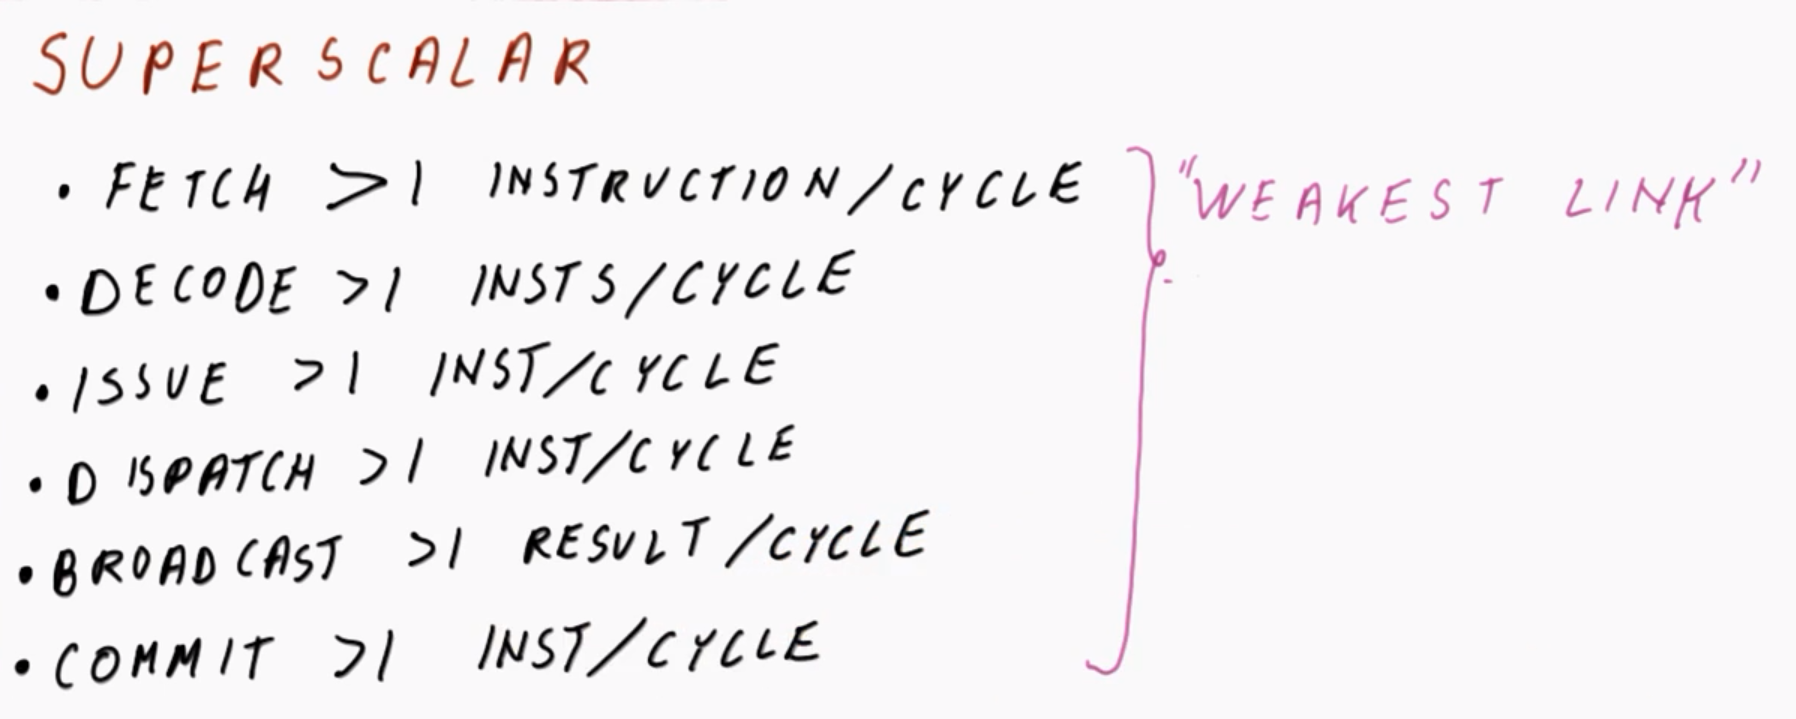 SUPERSCALAR
• FETCH >1 INSTRUCTION/CYCLE
"WEAKEST LINK"
• DECODE >1 INSTS/CYCLE
• ISSUE >1 INST/CYCLE
• DISPATCH >1 INST/CYCLE
• BROADCAST >1 RESULT/CYCLE
• COMMIT >1 INST/CYCLE